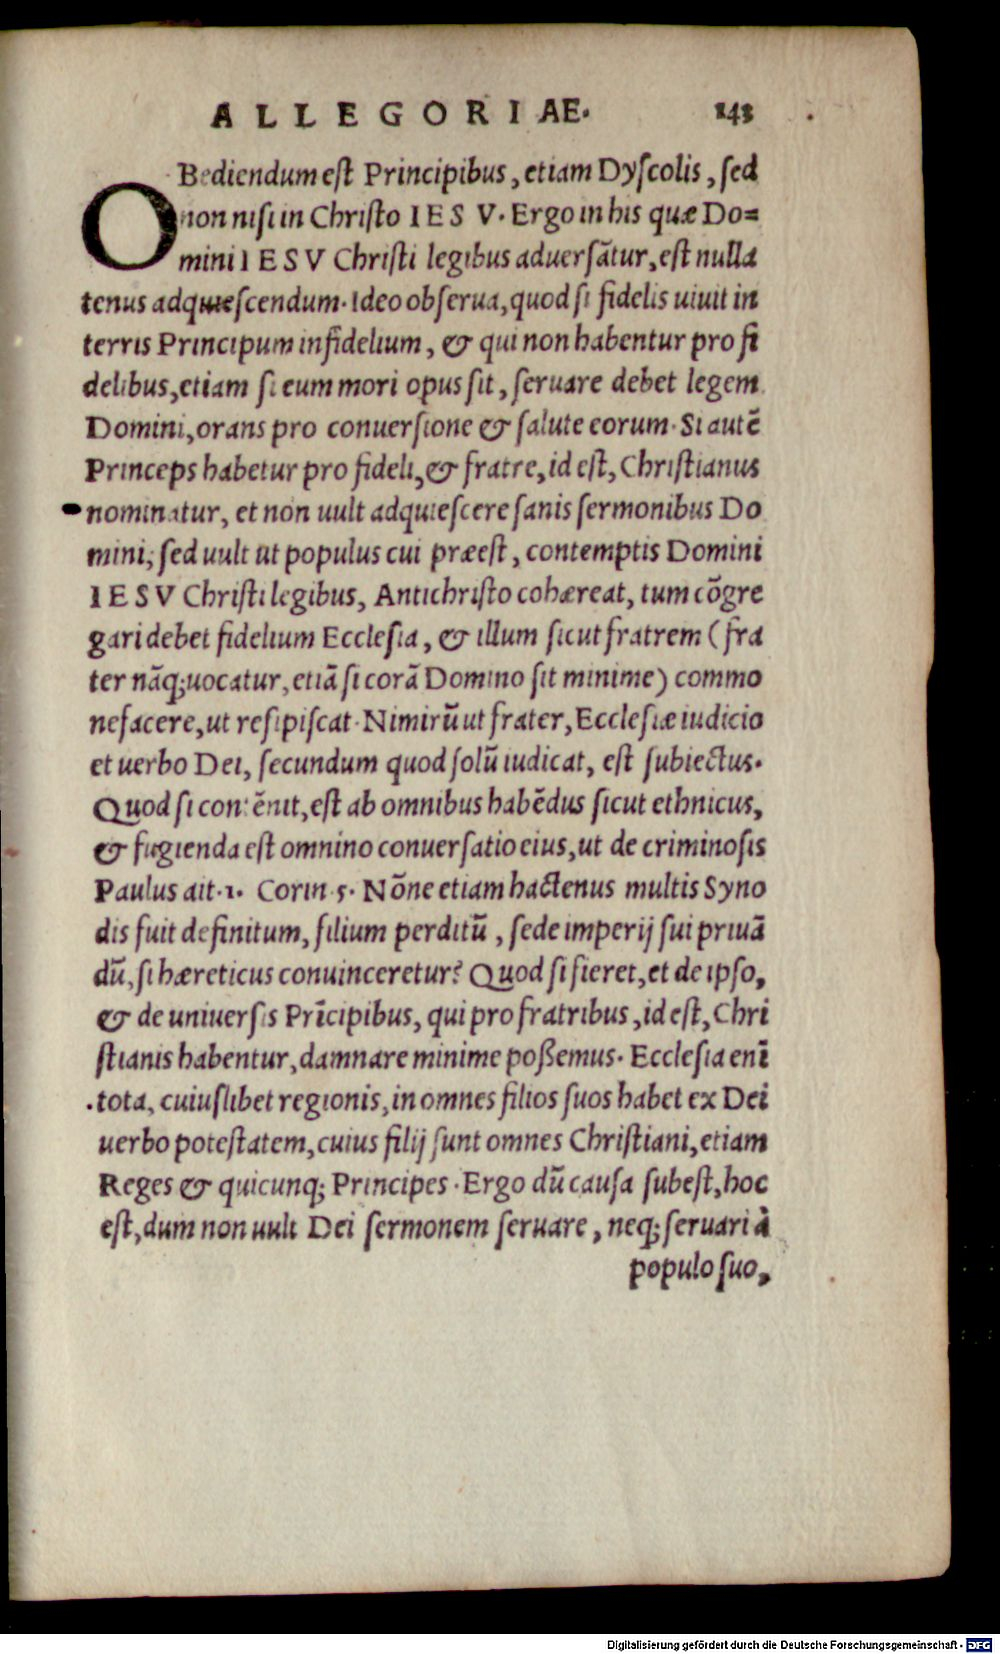 ALLEGORIAE. 143
OBediendum est Principibus, etiam Dyſcolis, ſed
non niſi in Chriſto IESV. Ergo in his quæ Do=
mini IESV Chriſti legibus aduerſãtur, eſt nulla
tenus adquieſcendum. Ideo obſerua, quod ſi fidelis uiuit in
terris Principum infidelium, & qui non habentur pro fi
delibus, etiam ſi eum mori opus ſit, ſeruare debet legem
Domini, orans pro conuerſione & ſalute eorum. Si autẽ
Princeps habetur pro fideli, & fratre, id eſt, Chriſtianus
nominatur, et non uult adquieſcere ſanis ſermonibus Do
mini, ſed uult ut populus cui præeſt, contemptis Domini
IESV Chriſti legibus, Antichriſto cohæreat, tum cõgre
gari debet fidelium Eccleſia, & illum ſicut fratrem (fra
ter nãq; uocatur, etiã ſi corã Domino ſit minime) commo
nefacere, ut reſipiſcat. Nimirũ ut frater, Eccleſiæ iudicio
et uerbo Dei, ſecundum quod ſolũ iudicat, eſt ſubiectus.
Quod ſi contẽnit, eſt ab omnibus habẽdus ſicut ethnicus,
& fugienda eſt omnino conuerſatio eius, ut de criminoſis
Paulus ait. 1. Corin. 5. Nõne etiam hactenus multis Syno
dis fuit definitum, filium perditũ, ſede imperij ſui priuã
dũ, ſi hæreticus conuinceretur? Quod ſi fieret, et de ipſo,
& de uniuerſis Prĩcipibus, qui pro fratribus, id eſt, Chri
ſtianis habentur, damnare minime poßemus. Eccleſia enĩ
tota, cuiuſlibet regionis, in omnes filios ſuos habet ex Dei
uerbo poteſtatem, cuius filij ſunt omnes Chriſtiani, etiam
Reges & quicunq; Principes. Ergo dũ cauſa ſubeſt, hoc
eſt, dum non uult Dei ſermonem ſeruare, neq; ſeruari à
populo ſuo,
Digitalisierung gefördert durch die Deutsche Forschungsgemeinschaft - DFG